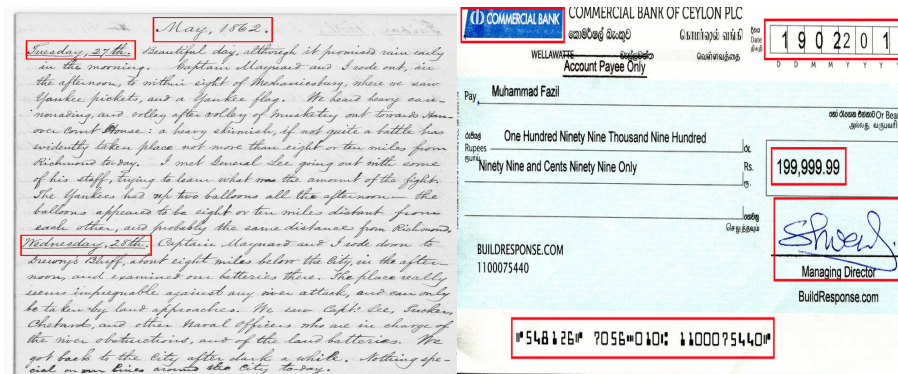 May, 1862.
Tuesday, 27th. Beautiful day, although it promised rain early
in the morning. Captain Maynard and I rode out, in
the afternoon, to within sight of Mechanicsburg, where we saw
Yankee pickets, and a Yankee flag. We heard heavy can-
nonading, and volley after volley of musketry out towards Han-
over Court House: a heavy skirmish, if not quite a battle has
evidently taken place not more than eight or ten miles from
Richmond to-day. I met General Lee going out with some
of his staff, trying to learn what was the amount of the fight.
The Yankees had up two balloons all the afternoon — the
balloons appeared to be eight or ten miles distant from
each other, and probably the same distance from Richmond.
Wednesday, 28th. Captain Maynard and I rode down to
Drewry's Bluff, about eight miles below the City, in the after-
noon, and examined our batteries there. The place really
seems impregnable against any river attack, and can only
be taken by land approaches. We saw Capt. Lee, Tucker,
Chatard, and other Naval Officers who are in charge of
the river obstructions, and of the land batteries. We
got back to the City after dark a while. Nothing spe-
cial on our lines around the City to-day.
COMMERCIAL BANK
COMMERCIAL BANK OF CEYLON PLC
කොමර්ෂල් බැංකුව
கொமர்ஷல் வங்கி
WELLAWATTE
வெள்ளவத்தை
Account Payee Only
දිනය
Date
திகதி
1 9 0 2 2 0 1
D D M M Y Y Y
Pay
Muhammad Fazil
Or Bea
அல்லது
රුපියල්
Rupees
ரூபாய்
One Hundred Ninety Nine Thousand Nine Hundred
රු.
Ninety Nine and Cents Ninety Nine Only
Rs.
ரூ.
199,999.99
BUILDRESPONSE.COM
1100075440
Managing Director
BuildResponse.com
⑈548126⑈ 7056⑉010⑆ 1100075440⑈